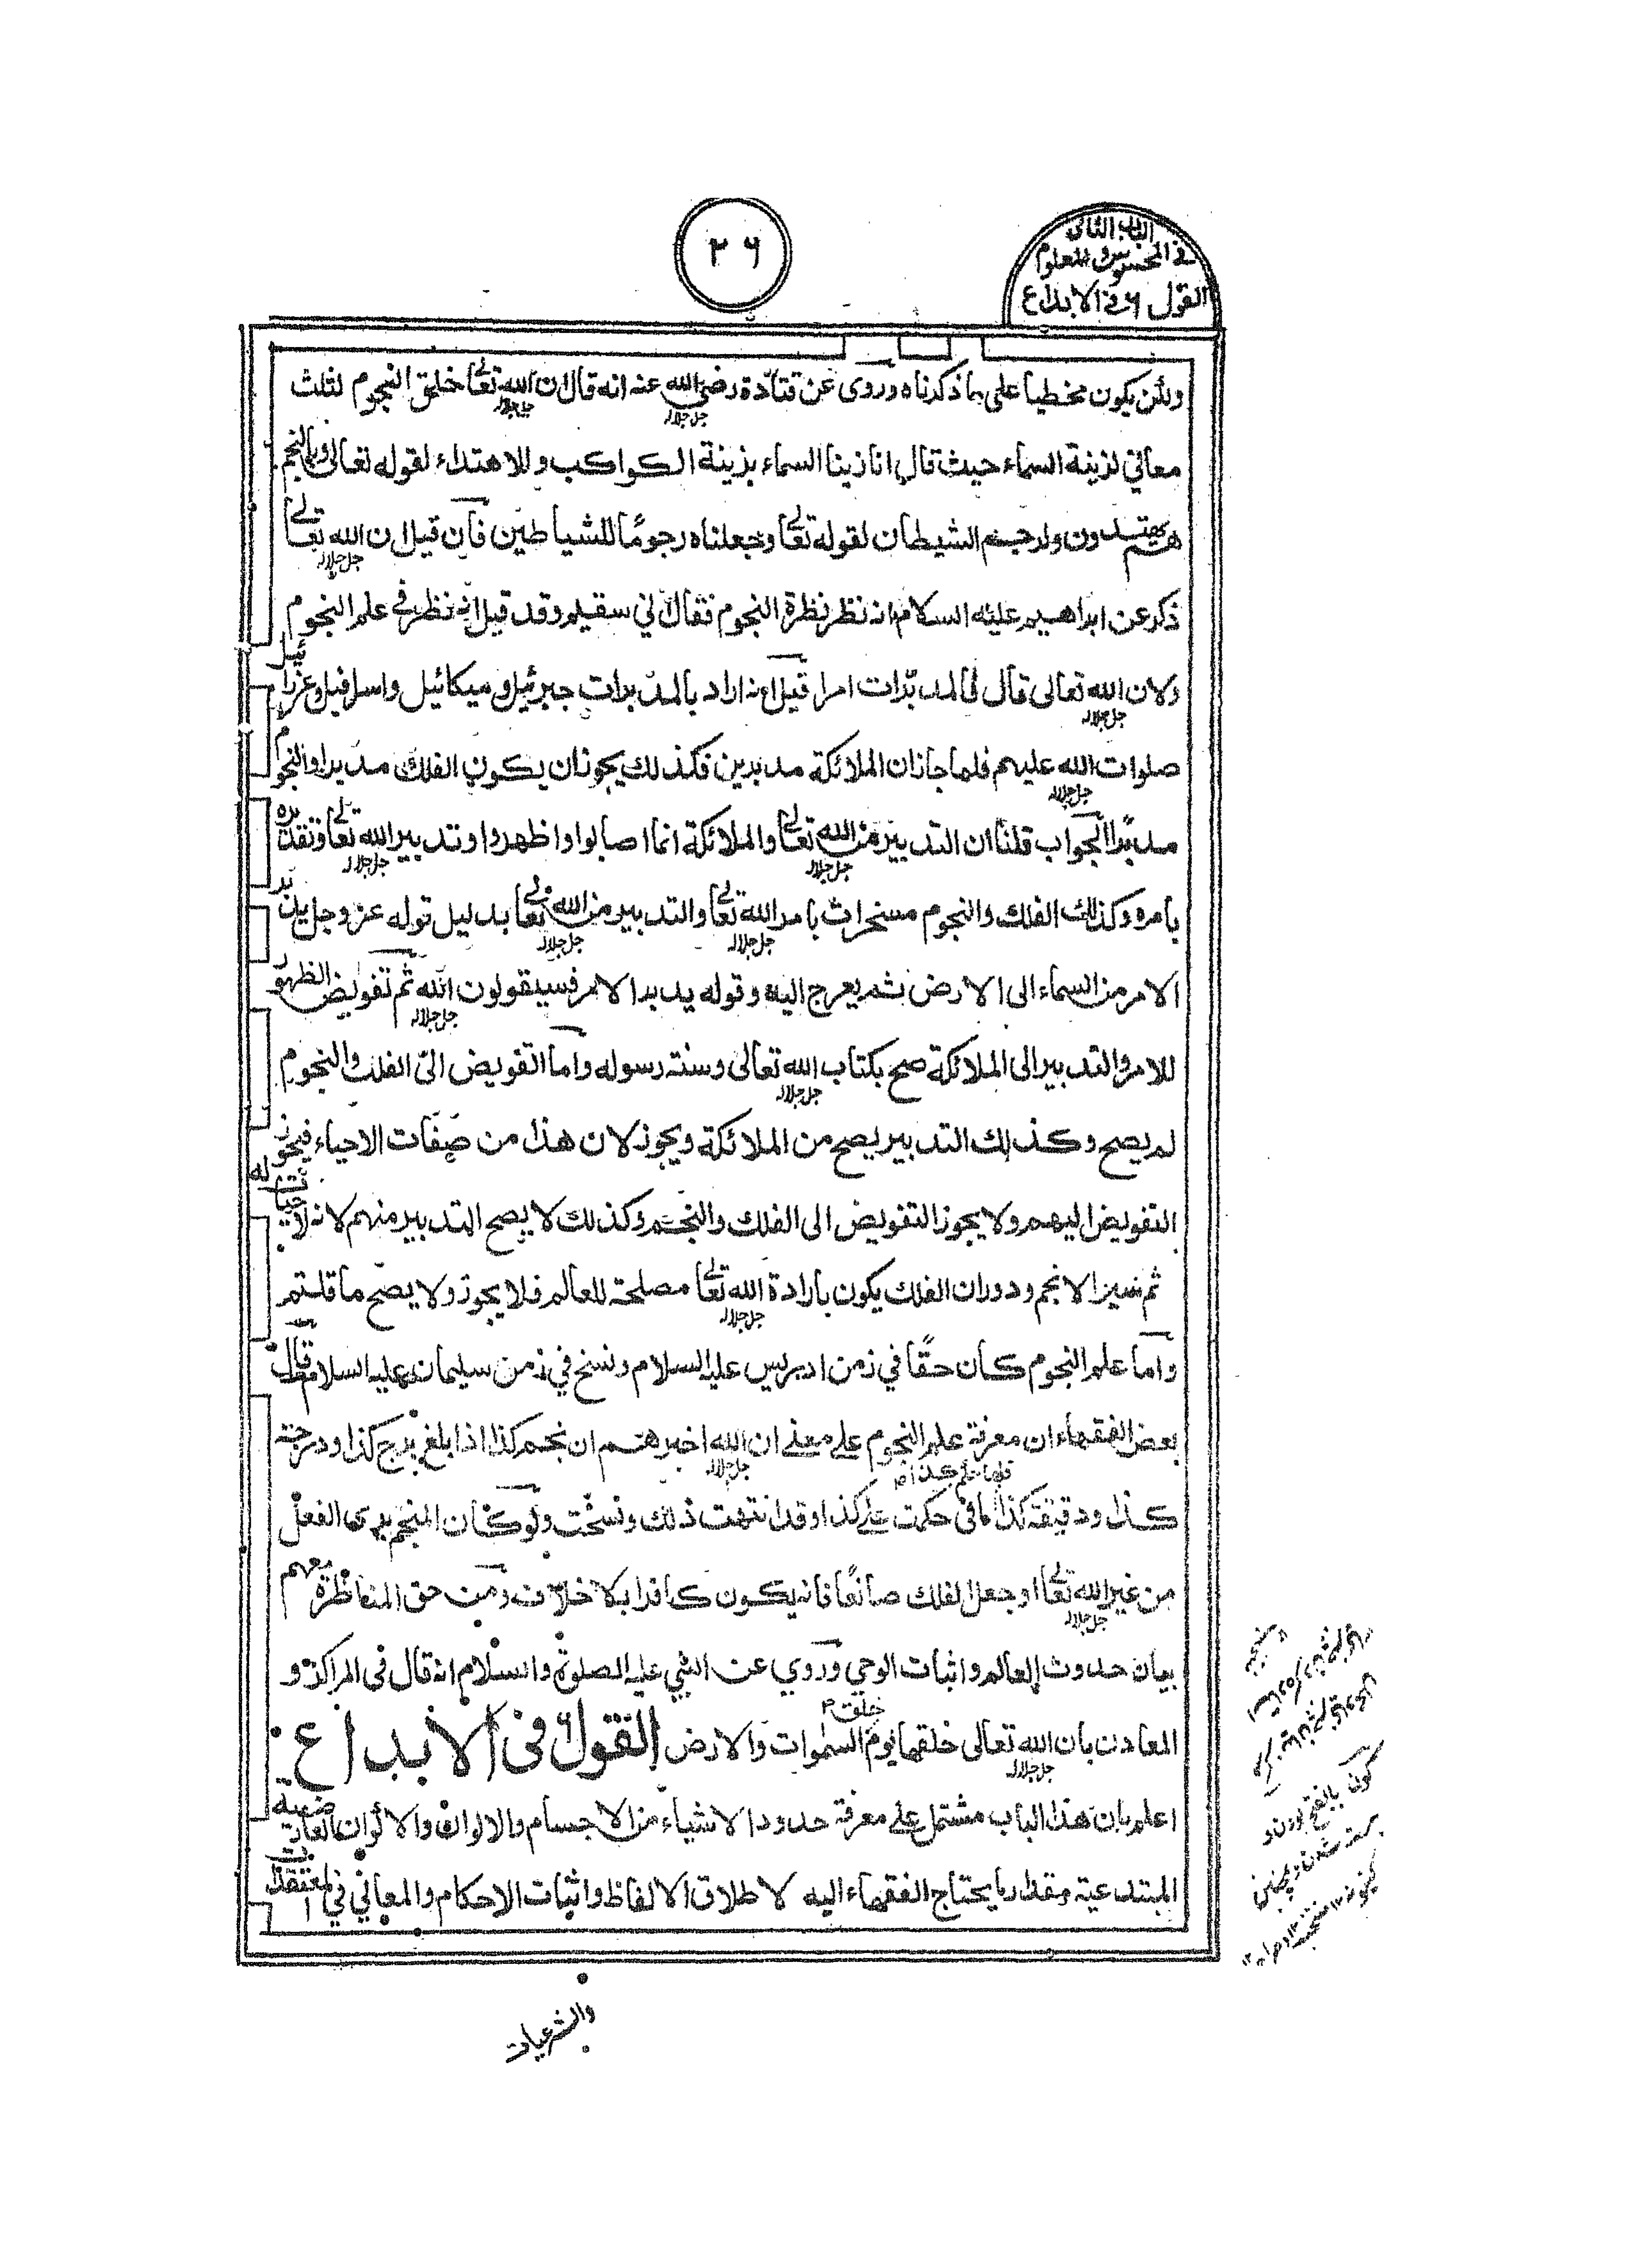 الباب الثانی
فی المحسوس والمعلوم
القول ۶ فی الابداع
۲۶
ولئن یکون مخطیا علی ما ذکرناه وروی عن قتادة رضی الله عنه انه قال ان الله تعالی خلق النجوم لثلث
معانی لزینة السماء حیث قال انا زینا السماء بزینة الکواکب وللاهتداء لقوله تعالی وبالنجم
هم یهتدون ولرجم الشیطان لقوله تعالی وجعلناه رجوما للشیاطین فان قیل ان الله تعالی
ذکر عن ابراهیم علیه السلام انه نظر نظرة النجوم فقال انی سقیم وقد قیل انه نظر فی علم النجوم
ولان الله تعالی قال فالمدبرات امرا قیل انه اراد بالمدبرات جبرئیل ومیکائیل واسرافیل وعزرائیل
صلوات الله علیهم فلما جاز ان الملائکة مدبرین فکذلك یجوز ان یکون الفلك مدبرا والنجوم
مدبرا الجواب قلنا ان التدبیر من الله تعالی والملائکة انما اصابوا واظهروا وتدبیر الله تعالی وتقدیره
بامره وکذلك الفلك والنجوم مسخرات بامر الله تعالی والتدبیر من الله تعالی بدلیل قوله عز وجل یدبر
الامر من السماء الی الارض ثم یعرج الیه وقوله یدبر الامر فسیقولون الله ثم تفویض الظهور
للامر والتدبیر الی الملائکة صح بکتاب الله تعالی وسنة رسوله واما التفویض الی الفلك والنجوم
لم یصح وکذلك التدبیر یصح من الملائکة ویجوز لان هذا من صفات الاحیاء فیجوز
التفویض الیهم ولا یجوز التفویض الی الفلك والنجم وکذلك لا یصح التدبیر منهم لانه لا حیاة له
ثم سیر الانجم ودوران الفلك یکون بارادة الله تعالی مصلحة للعالم فلا یجوز ولا یصح ما قلتم
واما علم النجوم کان حقا فی زمن ادریس علیه السلام ونسخ فی زمن سلیمان علیه السلام قال
بعض الفقهاء ان معرفة علم النجوم علی معنی ان الله اخبرهم ان نجم کذا اذا بلغ برج کذا ودرجة
کذا ودقیقة کذا فانی حکمت علی کذا وقد انتهت ذلك ونسخت ولو کان المنجم یری الفعل
من غیر الله تعالی او جعل الفلك صانعا فانه یکون کافرا بلا خلاف ومن حق المناظرة معهم
بیان حدوث العالم واثبات الوحی وروی عن النبی علیه الصلوة والسلام انه قال فی المراکز و
المعادن بان الله تعالی خلقها یوم خلق السموات والارض القول ۶ فی الابداع
اعلم بان هذا الباب مشتمل علی معرفة حدود الاشیاء من الاجسام والالوان والاکوان العارضیة
المبتدعیة مقدار ما یحتاج الفقهاء الیه لاطلاق الالفاظ واثبات الاحکام والمعانی فی المعتقدات
والشرعیات
کون بالفتح بودن و